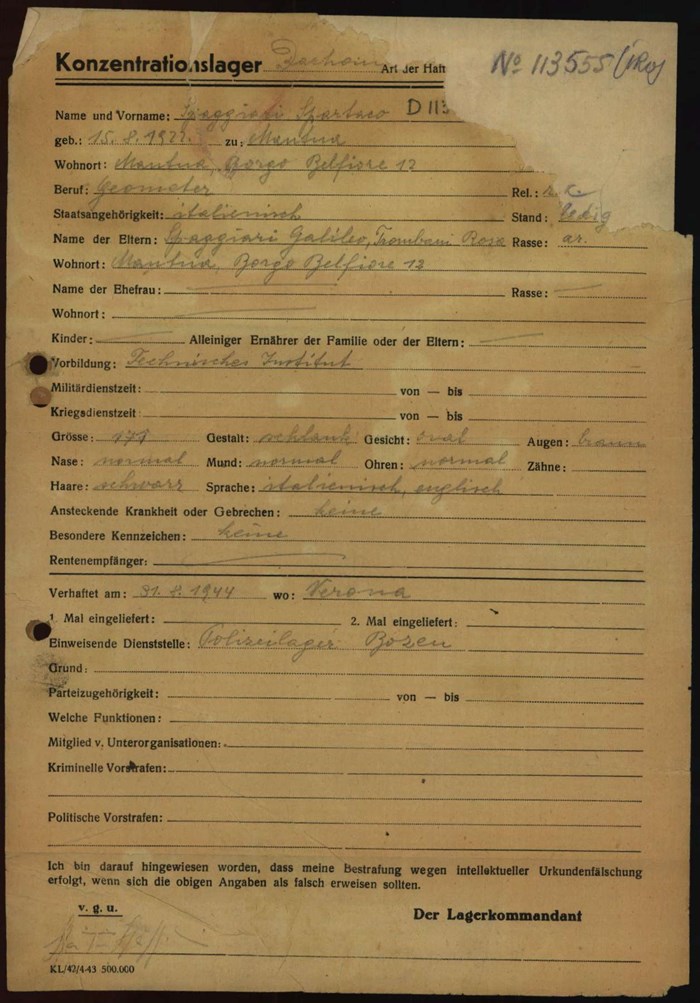 Konzentrationslager Dachau Art der Haft Nº 113555 (IRO)
Name und Vorname: Spaggiari Spartaco D 113
geb.: 15.8.1922. zu: Mantua
Wohnort: Mantua, Borgo Belfiore 12
Beruf: Geometer Rel.: r. k.
Staatsangehörigkeit: italienisch Stand: ledig
Name der Eltern: Spaggiari Galileo, Trombani Rosa Rasse: ar.
Wohnort: Mantua, Borgo Belfiore 12
Name der Ehefrau: Rasse:
Wohnort:
Kinder: Alleiniger Ernährer der Familie oder der Eltern:
Vorbildung: Technisches Institut
Militärdienstzeit: von — bis
Kriegsdienstzeit: von — bis
Grösse: 171 Gestalt: schlank Gesicht: oval Augen: braun
Nase: normal Mund: normal Ohren: normal Zähne:
Haare: schwarz Sprache: italienisch, englisch
Ansteckende Krankheit oder Gebrechen: keine
Besondere Kennzeichen: keine
Rentenempfänger:
Verhaftet am: 31.8.1944 wo: Verona
1. Mal eingeliefert: 2. Mal eingeliefert:
Einweisende Dienststelle: Polizeilager Bozen
Grund:
Parteizugehörigkeit: von — bis
Welche Funktionen:
Mitglied v. Unterorganisationen:
Kriminelle Vorstrafen:
Politische Vorstrafen:
Ich bin darauf hingewiesen worden, dass meine Bestrafung wegen intellektueller Urkundenfälschung
erfolgt, wenn sich die obigen Angaben als falsch erweisen sollten.
v. g. u. Der Lagerkommandant
KL/42/4-43 500.000